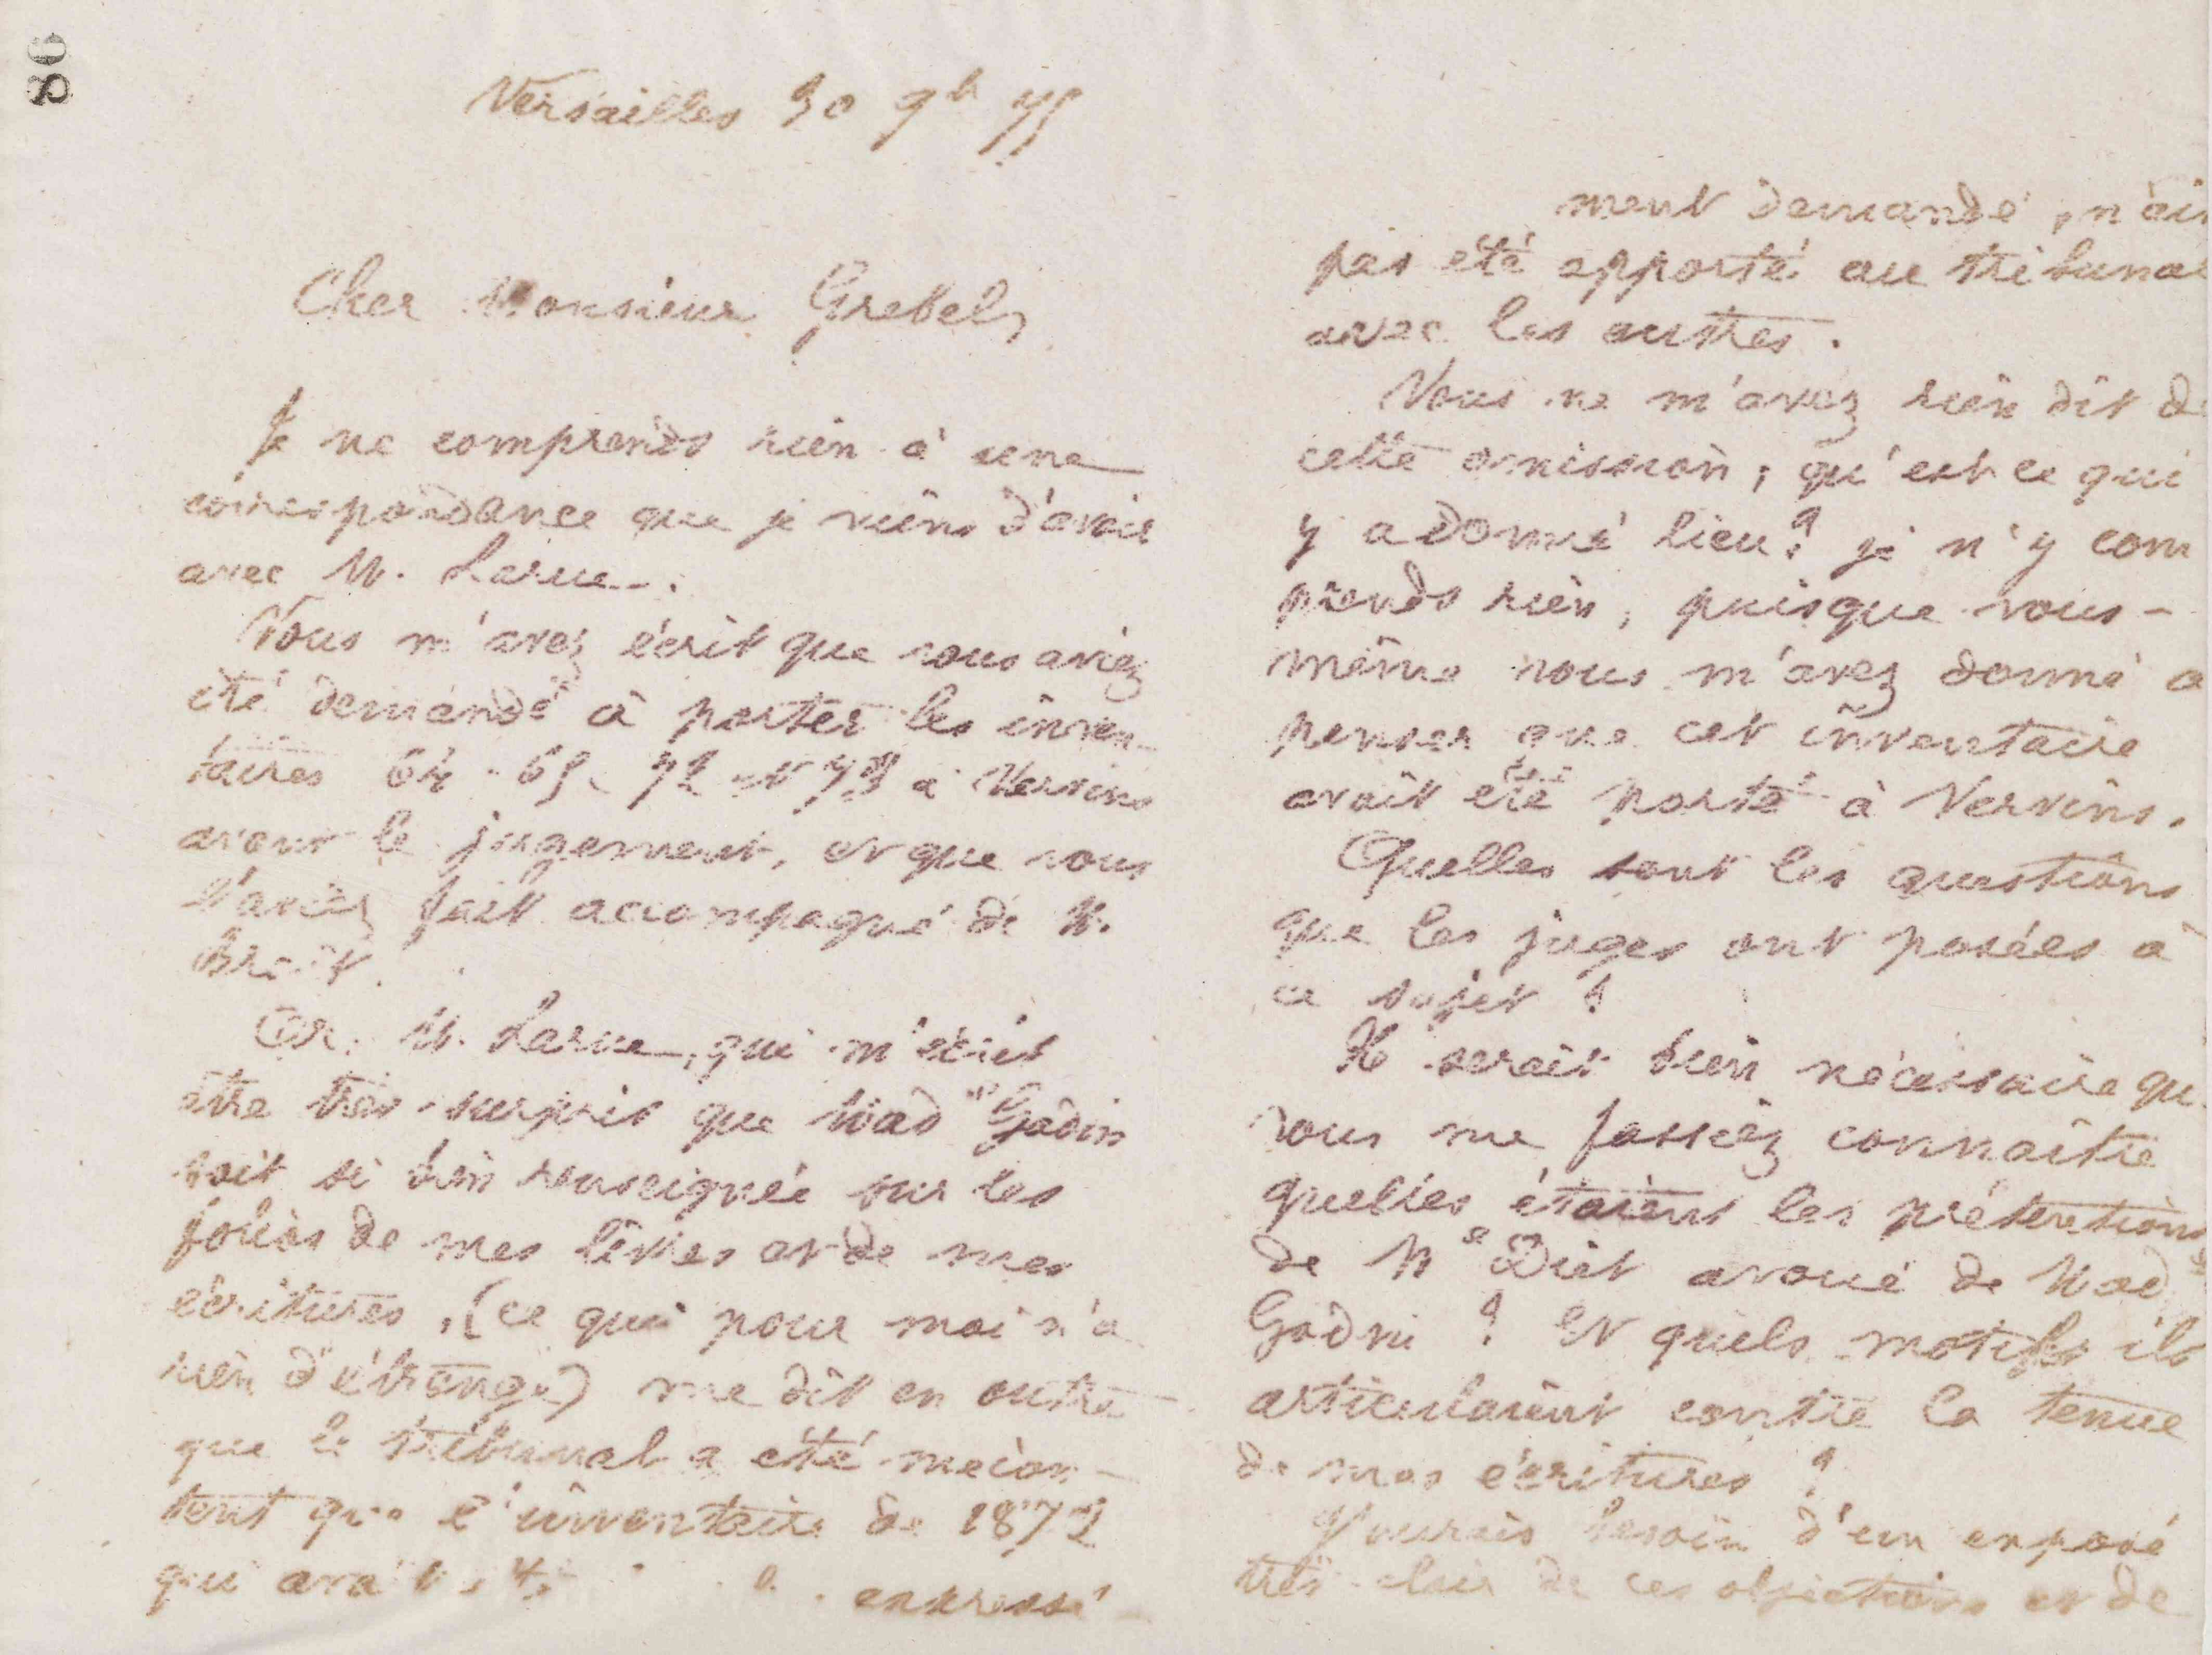 86
Versailles 30 9b 75
Cher Monsieur Grebel,
Je ne comprends rien à une
correspondance que je viens d'avoir
avec M. Larue.
Vous m'avez écrit que vous aviez
été demandé à porter les inven-
taires 64. 65. 72 et 73 à Vervins
avant le jugement, et que vous
l'aviez fait accompagné de M.
Or, M. Larue, qui m'écrit
être très surpris que Made Godin
soit si bien renseignée sur les
folios de mes livres et de mes
écritures, (ce qui pour moi n'a
rien d'étrange) me dit en outre
que le tribunal a été mécon-
tent que l'inventaire de 1872
qui avait été expressé-
ment demandé, n'ait
pas été apporté au tribunal
avec les autres.
Vous ne m'avez rien dit de
cette omission; qu'est ce qui
y a donné lieu? je n'y com
prends rien, puisque vous-
même vous m'avez donné à
penser que cet inventaire
avait été porté à Vervins.
Quelles sont les questions
que les juges ont posées à
ce sujet?
Il serait bien nécessaire que
vous me fassiez connaître
quelles étaient les prétentions
de Me Dict avoué de Made
Godin? Et quels motifs ils
articulaient contre la tenue
de mes écritures?
J'aurais besoin d'un exposé
très clair de ces objections et de